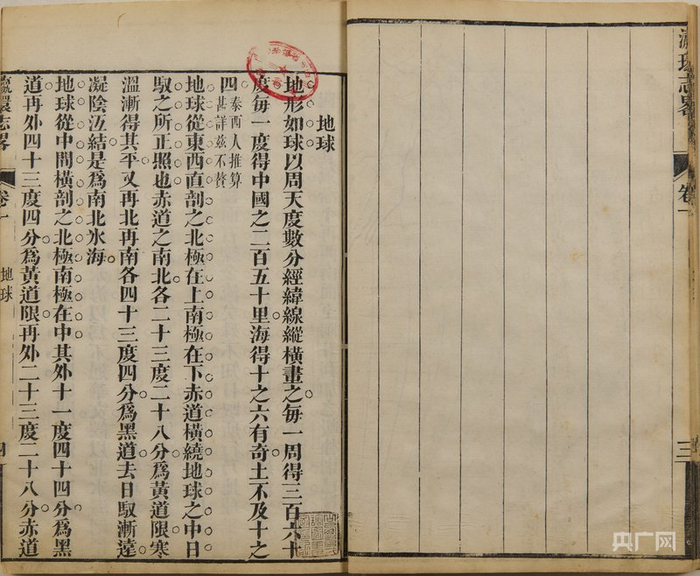 瀛環志畧
卷一
三
地球
地形如球以周天度數分經緯線縱橫畫之每一周得三百六十
度每一度得中國之二百五十里海得十之六有奇土不及十之
四
泰西人推算
甚詳茲不贅
地球從東西直剖之北極在上南極在下赤道橫繞地球之中日
馭之所正照也赤道之南北各二十三度二十八分爲黃道限寒
溫漸得其平又再北再南各四十三度四分爲黑道去日馭漸遠
凝陰沍結是爲南北氷海
地球從中間橫剖之北極南極在中其外十一度四十四分爲黑
道再外四十三度四分爲黃道限再外二十三度二十八分赤道
瀛環志畧
卷一
地球
四
央广网